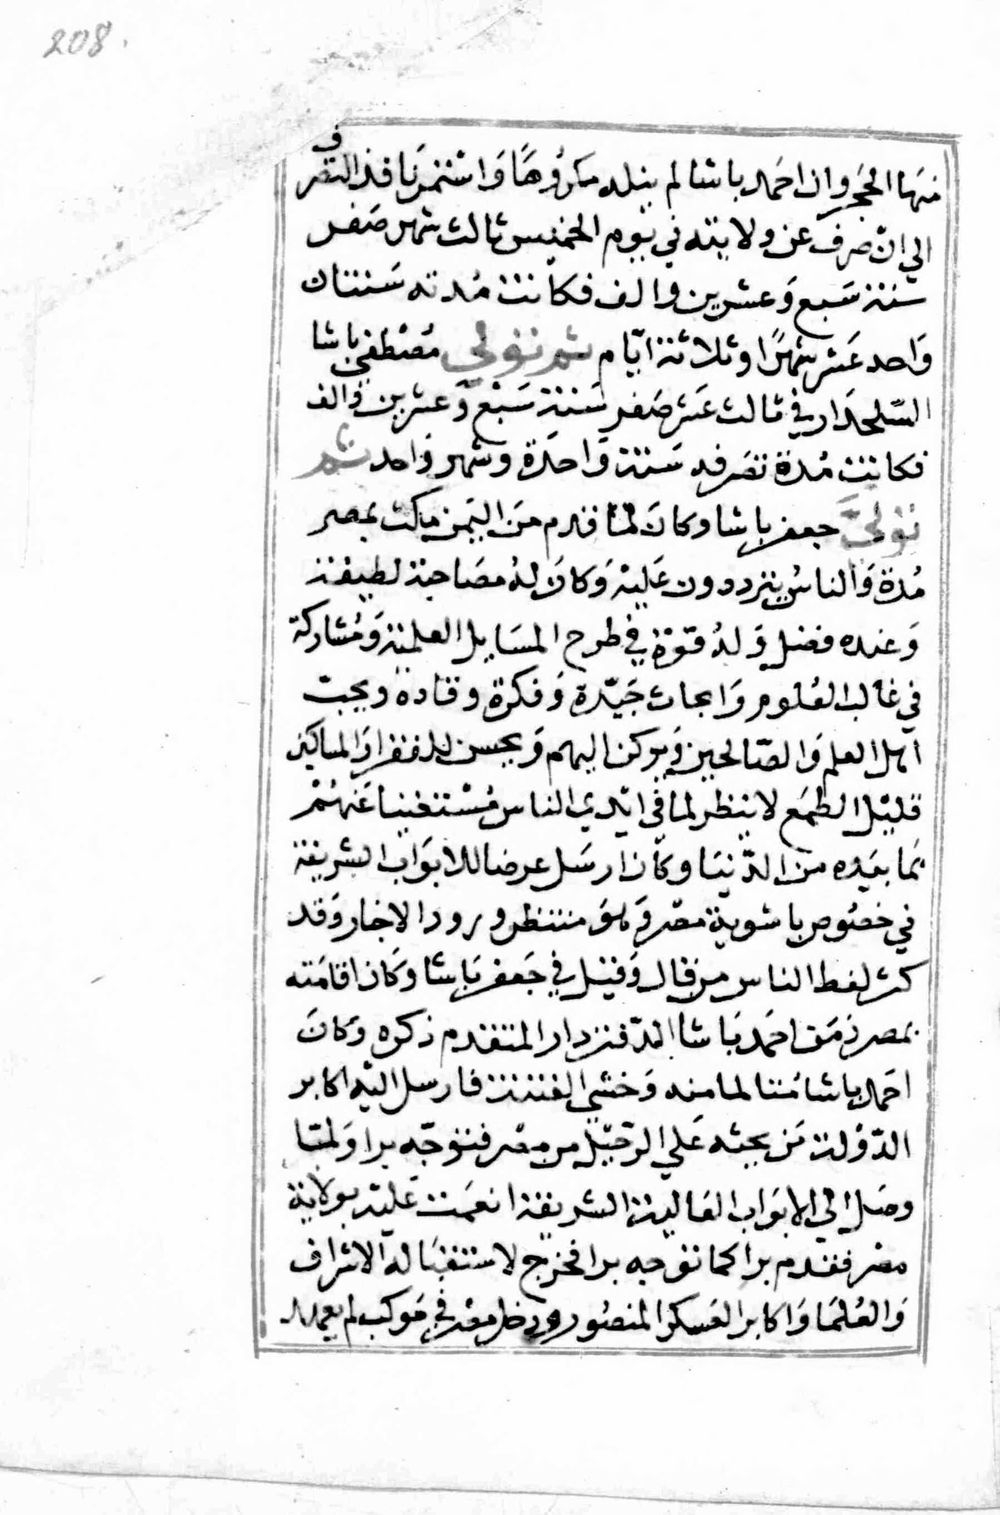 208.
منها الحجر وان احمد باشا لم ينله مكروها واستمر نافذ التصرف
الي ان صرف عن ولايته في يوم الخميس ثالث شهر صفر
سنة سبع وعشرين والف فكانت مدته سنتان
واحد عشر شهرا وثلاثة ايام ثم تولي مصطفي باشا
السلحدار في ثالث عشر صفر سنة سبع وعشرين والف
فكانت مدة تصرفه سنة واحدة وشهر واحد ثم
تولي جعفر باشا وكان لما قدم من اليمن مكث بمصر
مدة والناس يترددون عليه وكان له مصاحبة لطيفة
وعنده فضل وله قوة في طرح المسايل العلمية ومشاركة
في غالب العلوم وابحاث جيدة وفكرة وقاده ويحب
اهل العلم والصالحين ويركن اليهم ويحسن للفقرا والمساكين
قليل الطمع لا ينظر لما في ايدي الناس مستغنيا عنهم
بما بيده من الدنيا وكان ارسل عرضا للابواب الشريفة
في خصوص باشوية مصر وهو منتظر ورود الاخبار وقد
كثر لغط الناس من قال وقيل في جعفر باشا وكان اقامته
بمصر زمن احمد باشا الدفتردار المتقدم ذكره وكان
احمد باشا متالما منه وخشي الفتنة فارسل اليه اكابر
الدولة من يحثه علي الرحيل من مصر فتوجه برا ولما
وصل الي الابواب العالية الشريفة انعمت عليه بولاية
مصر فقدم برا كما توجه برا فخرج لاستقباله الاشراف
والعلما واكابر العسكر المنصور ودخل مصر في موكب لم يعمل